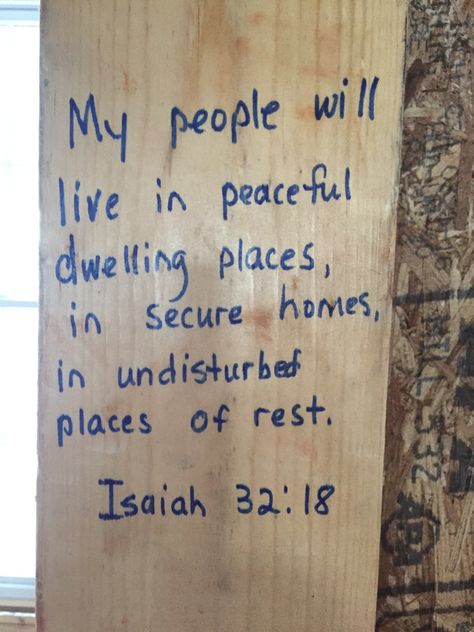 My people will
live in peaceful
dwelling places,
in secure homes,
in undisturbed
places of rest.
Isaiah 32:18
532
APA